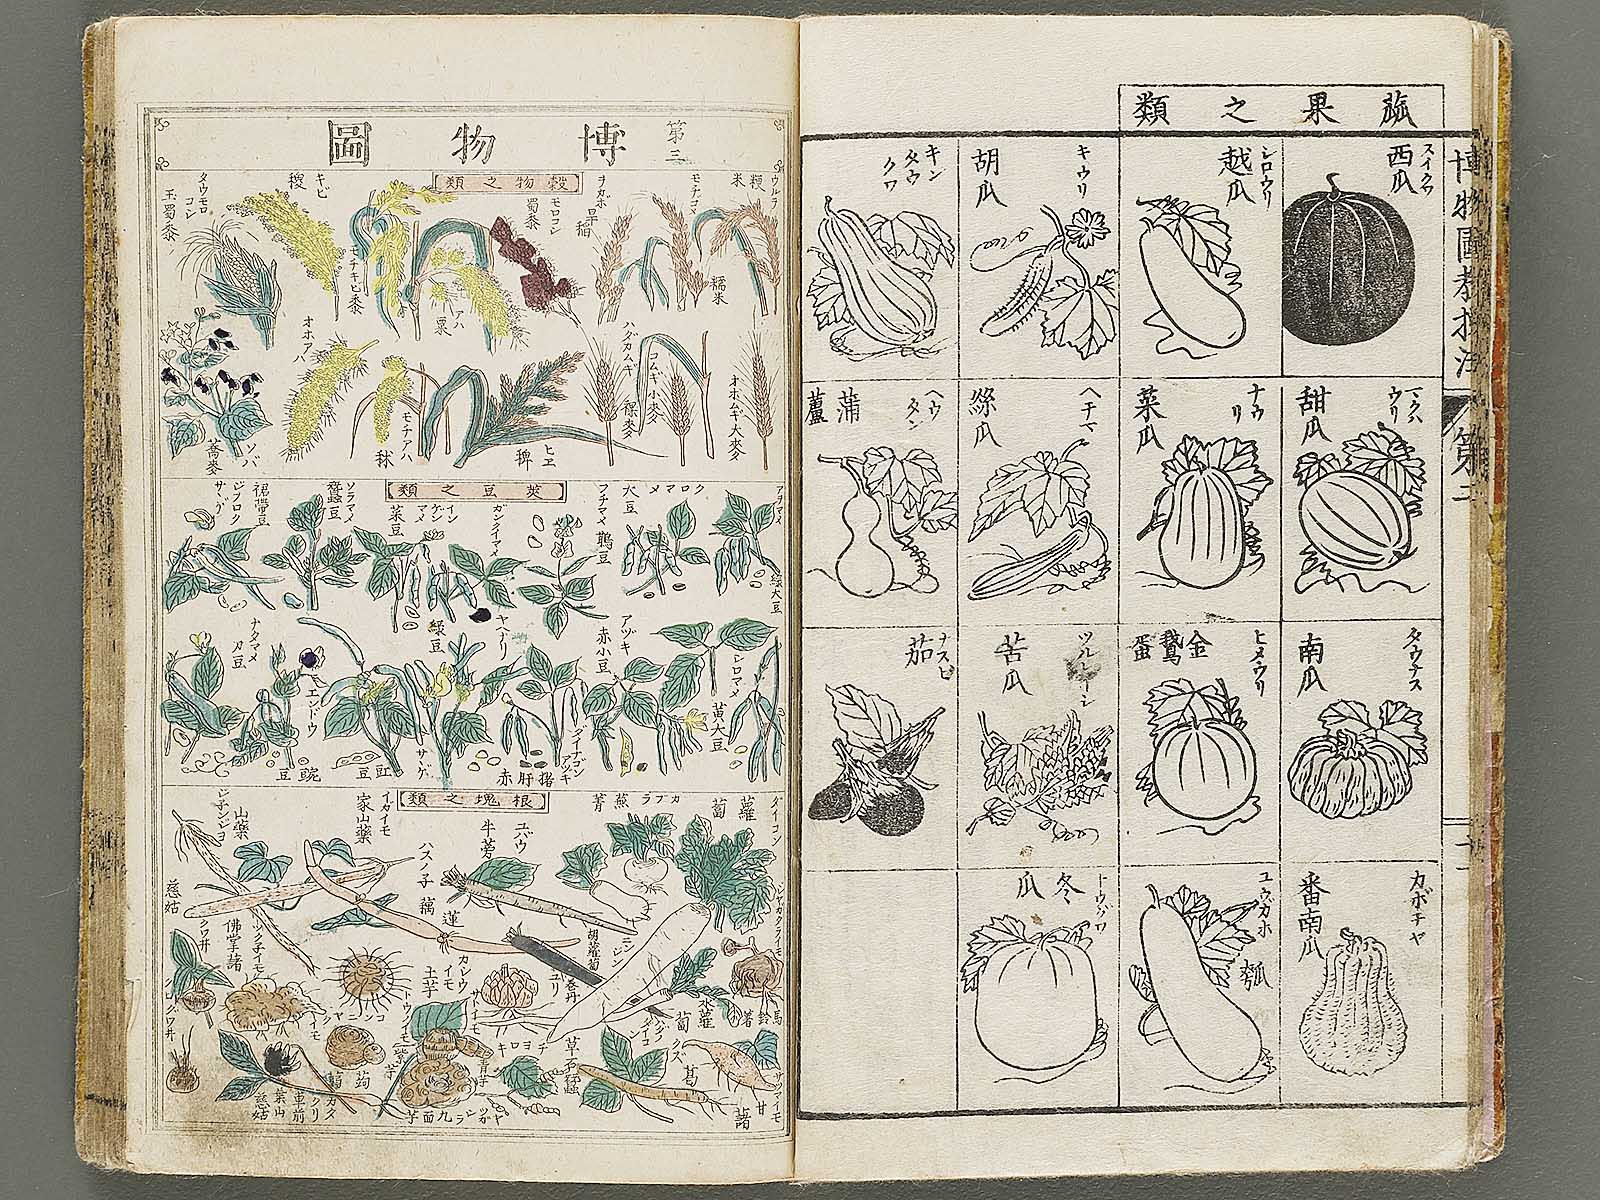 蓏果之類
博物圖教授法
第二
スイクワ
西瓜
シロウリ
越瓜
キウリ
胡瓜
キン
タウ
クワ
マクハ
ウリ
甜瓜
ナウリ
菜瓜
ヘチマ
絲瓜
ヘウタン
蒲蘆
タウナス
南瓜
ヒメウリ
金鵞蛋
苦瓜
ナスビ
茄
カボチヤ
番南瓜
ユウガホ
瓠
トウグワ
冬瓜
第三
博物圖
穀物之類
ウルシ
粳米
モチゴメ
糯米
ヲカホ
旱稲
モロコシ
蜀黍
キビ
稷
モチキビ
黍
タウモロコシ
玉蜀黍
アハ
粟
オホムギ
大麥
コムギ
小麥
ハダカムギ
裸麥
ヒエ
稗
モチアハ
秫
オホアハ
ソバ
蕎麥
莢豆之類
アヲマメ
緑大豆
クロマメ
大豆
フヂマメ
鵲豆
インゲンマメ
菜豆
ソラマメ
蠶豆
ジフロクサヽゲ
裙帶豆
シロマメ
黄大豆
アヅキ
赤小豆
ダイナゴンアヅキ
赤
ヤヘナリ
緑豆
サヽゲ
豇豆
エンドウ
豌豆
ナタマメ
刀豆
根塊之類
ダイコン
蘿蔔
カブラ
蕪菁
牛蒡
イカイモ
家山藥
山藥
ハスノ子
蓮藕
ニンジン
胡蘿蔔
ユリ
巻丹
クワ井
慈姑
ツクネイモ
佛掌藷
土芋
サトイモ
青芋
トウノイモ
紫芋
コンニヤクイモ
蒟蒻
チヨロギ
草石蠶
クズ
葛
サツマイモ
甘藷
ヤツガシラ
九面芋